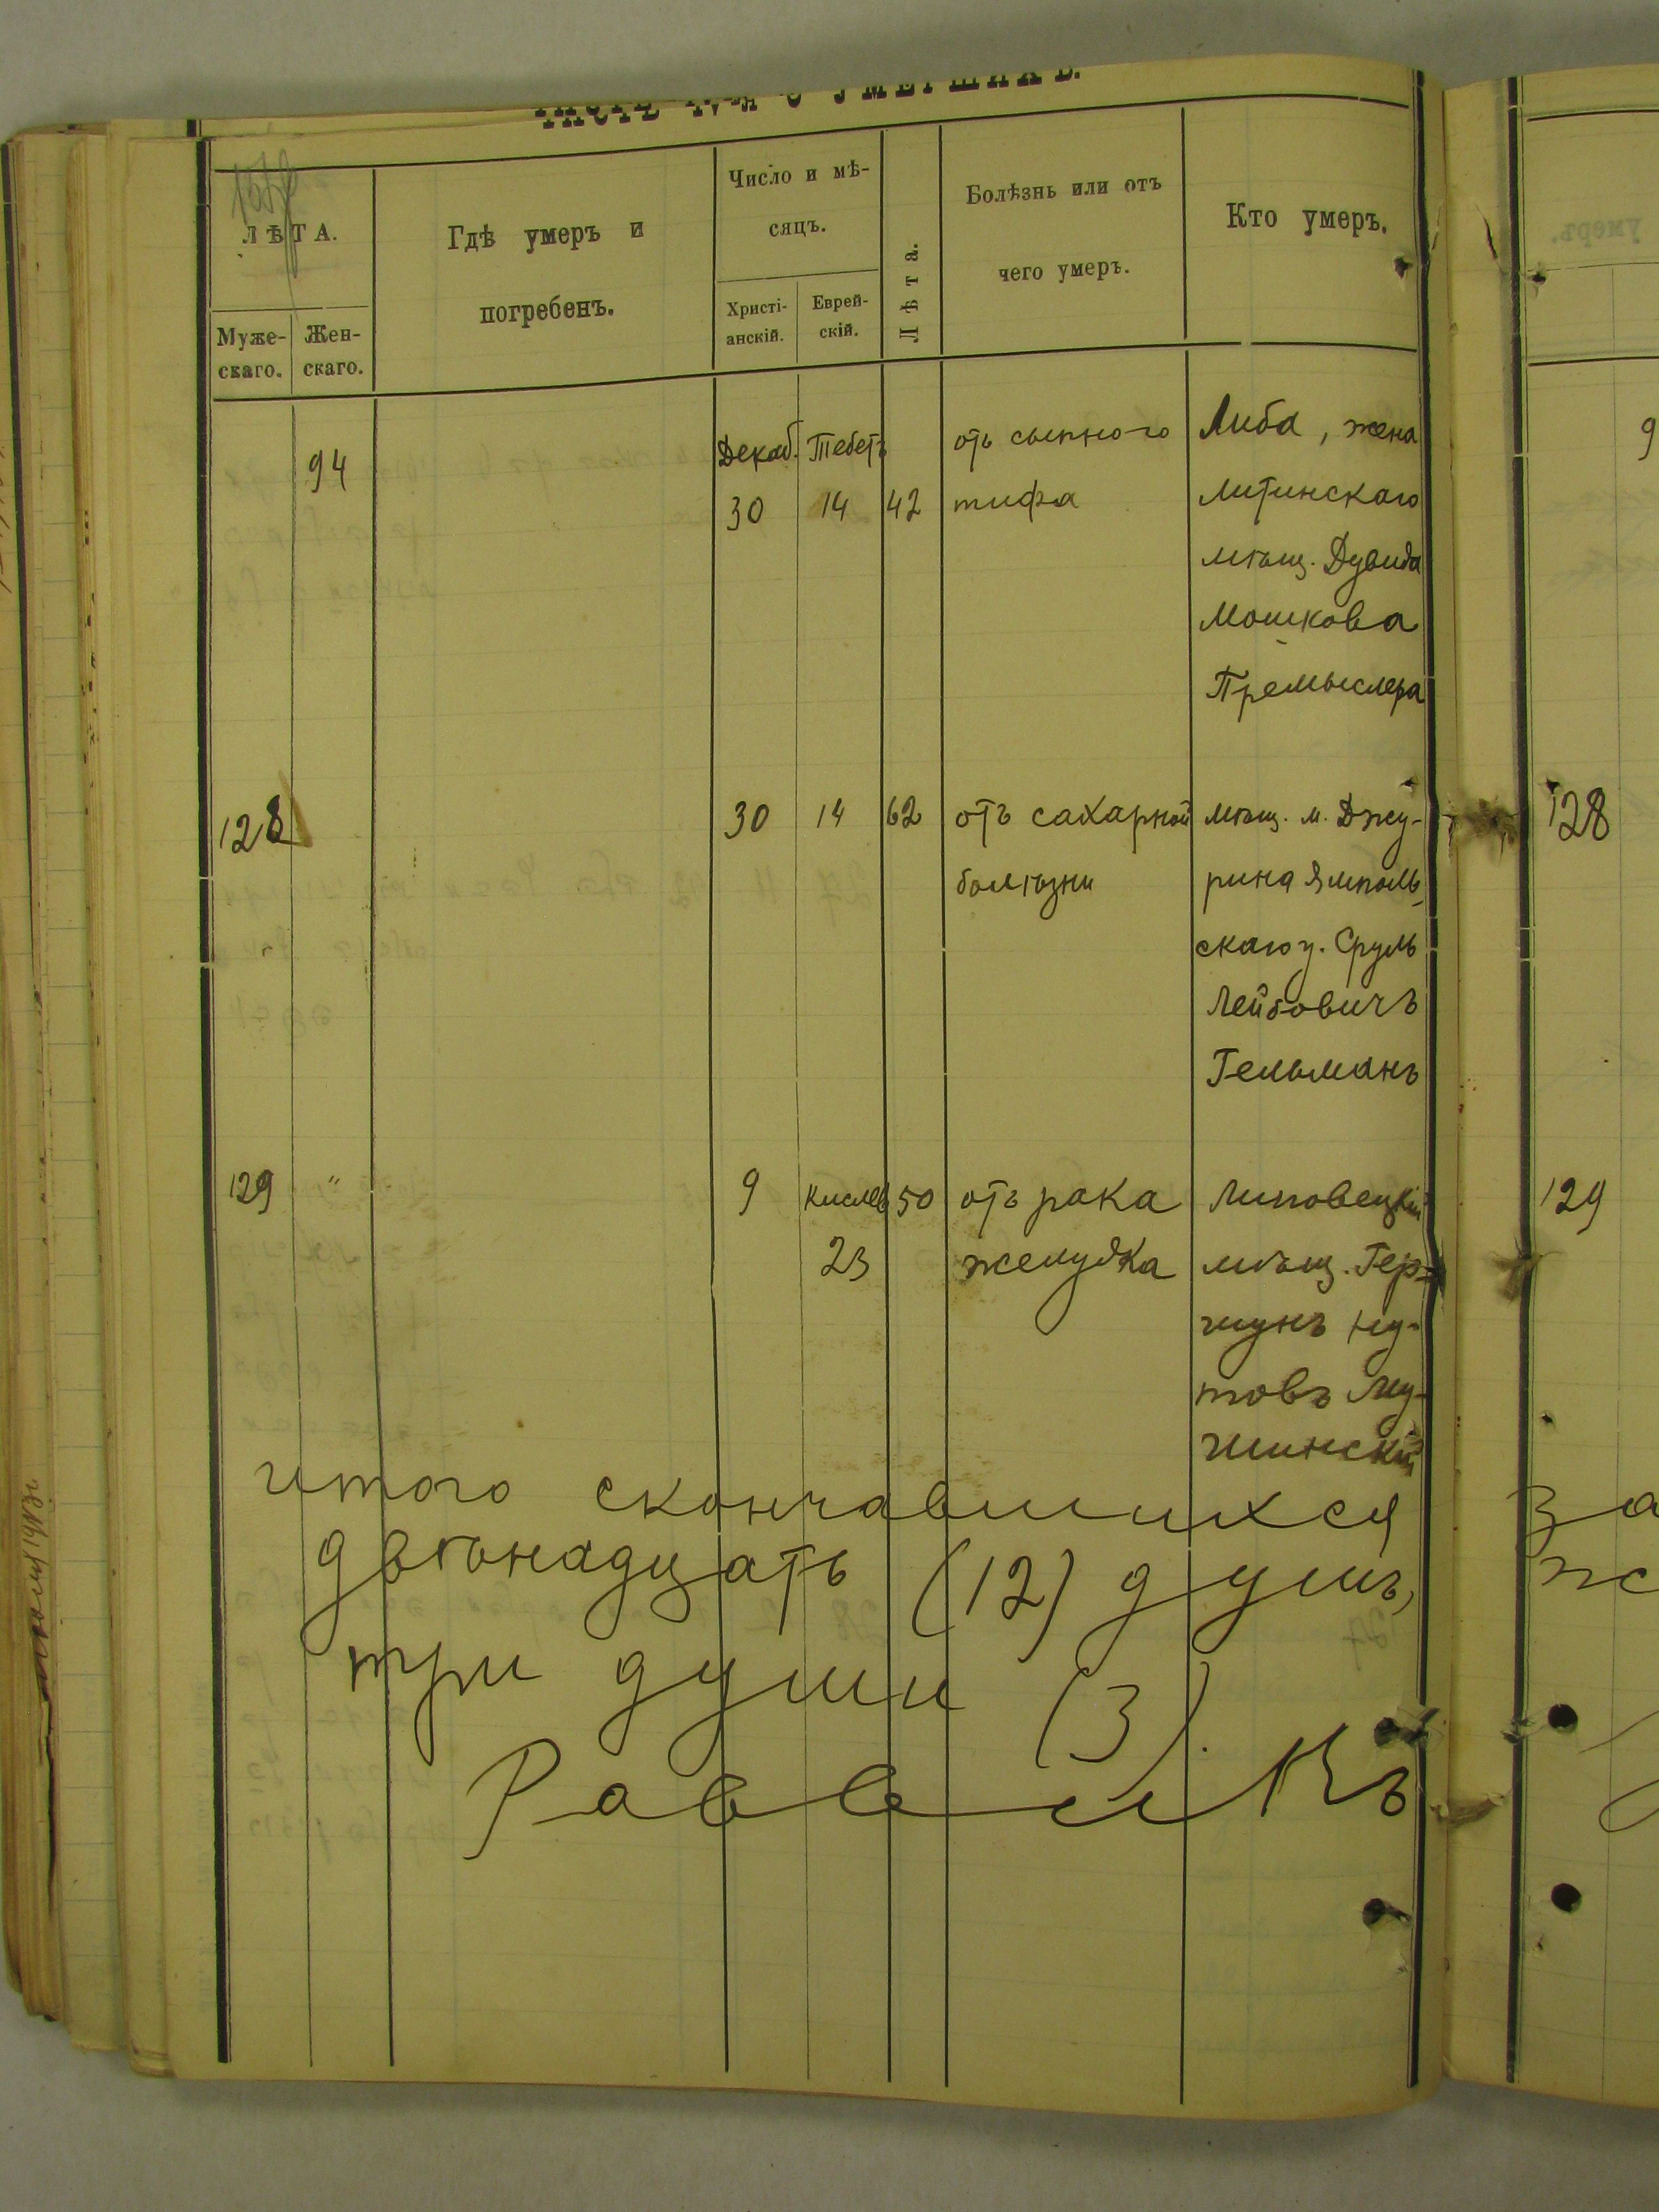 ЛѢТА.
Муже-
скаго.
Жен-
скаго.
Гдѣ умеръ и
погребенъ.
Число и мѣ-
сяцъ.
Христі-
анскій.
Еврей-
скій.
Лѣта.
Болѣзнь или отъ
чего умеръ.
Кто умеръ.
94
Декаб.
30
Тебетъ
14
42
отъ сыпного
тифа
Либа, жена
Литинскаго
мѣщ. Дувида
Мошкова
Премыслера
128
30
14
62
отъ сахарной
болѣзни
мѣщ. м. Джу-
рина Ямполь-
скаго у. Сруль
Лейбовичъ
Гельманъ
129
"
9
Кислев
23
50
отъ рака
желудка
Липовецкій
мѣщ. Гер-
шунъ Ну-
товъ
итого скончавшихся
двѣнадцать (12) душъ,
три души (3).
Раввинъ
128
129